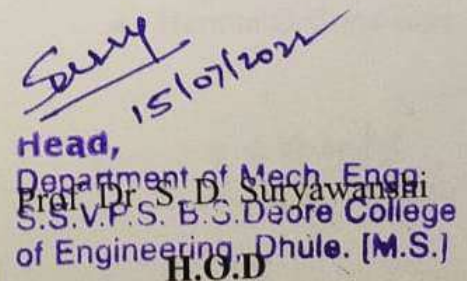 15/07/2022
Head,
Department of Mech. Engg.
Prof. Dr. S. D. Suryawanshi
S.S.V.P.S. B.S. Deore College
of Engineering, Dhule. [M.S.]
H.O.D